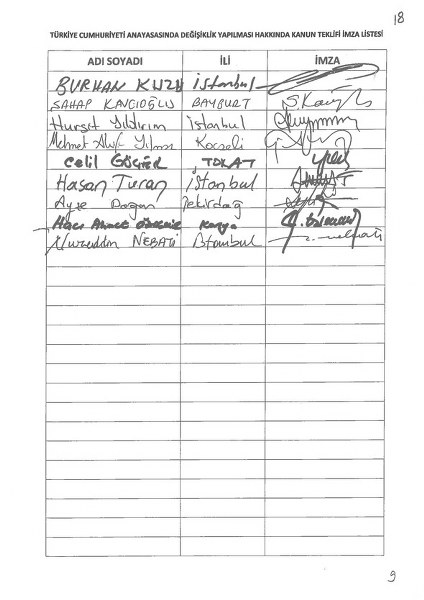 18
TÜRKİYE CUMHURİYETİ ANAYASASINDA DEĞİŞİKLİK YAPILMASI HAKKINDA KANUN TEKLİFİ İMZA LİSTESİ
ADI SOYADI İLİ İMZA
BURHAN KUZU İstanbul
SAHAP KAVCIOĞLU BAYBURT S.Kav
Hurşit Yıldırım İstanbul
Mehmet Akif Yılmaz Kocaeli
Celil GÖÇER TOKAT
Hasan Turan İstanbul
Ayşe Doğan Tekirdağ
Hacı Ahmet Özdemir Konya
Nureddin NEBATİ İstanbul n. nebati
9